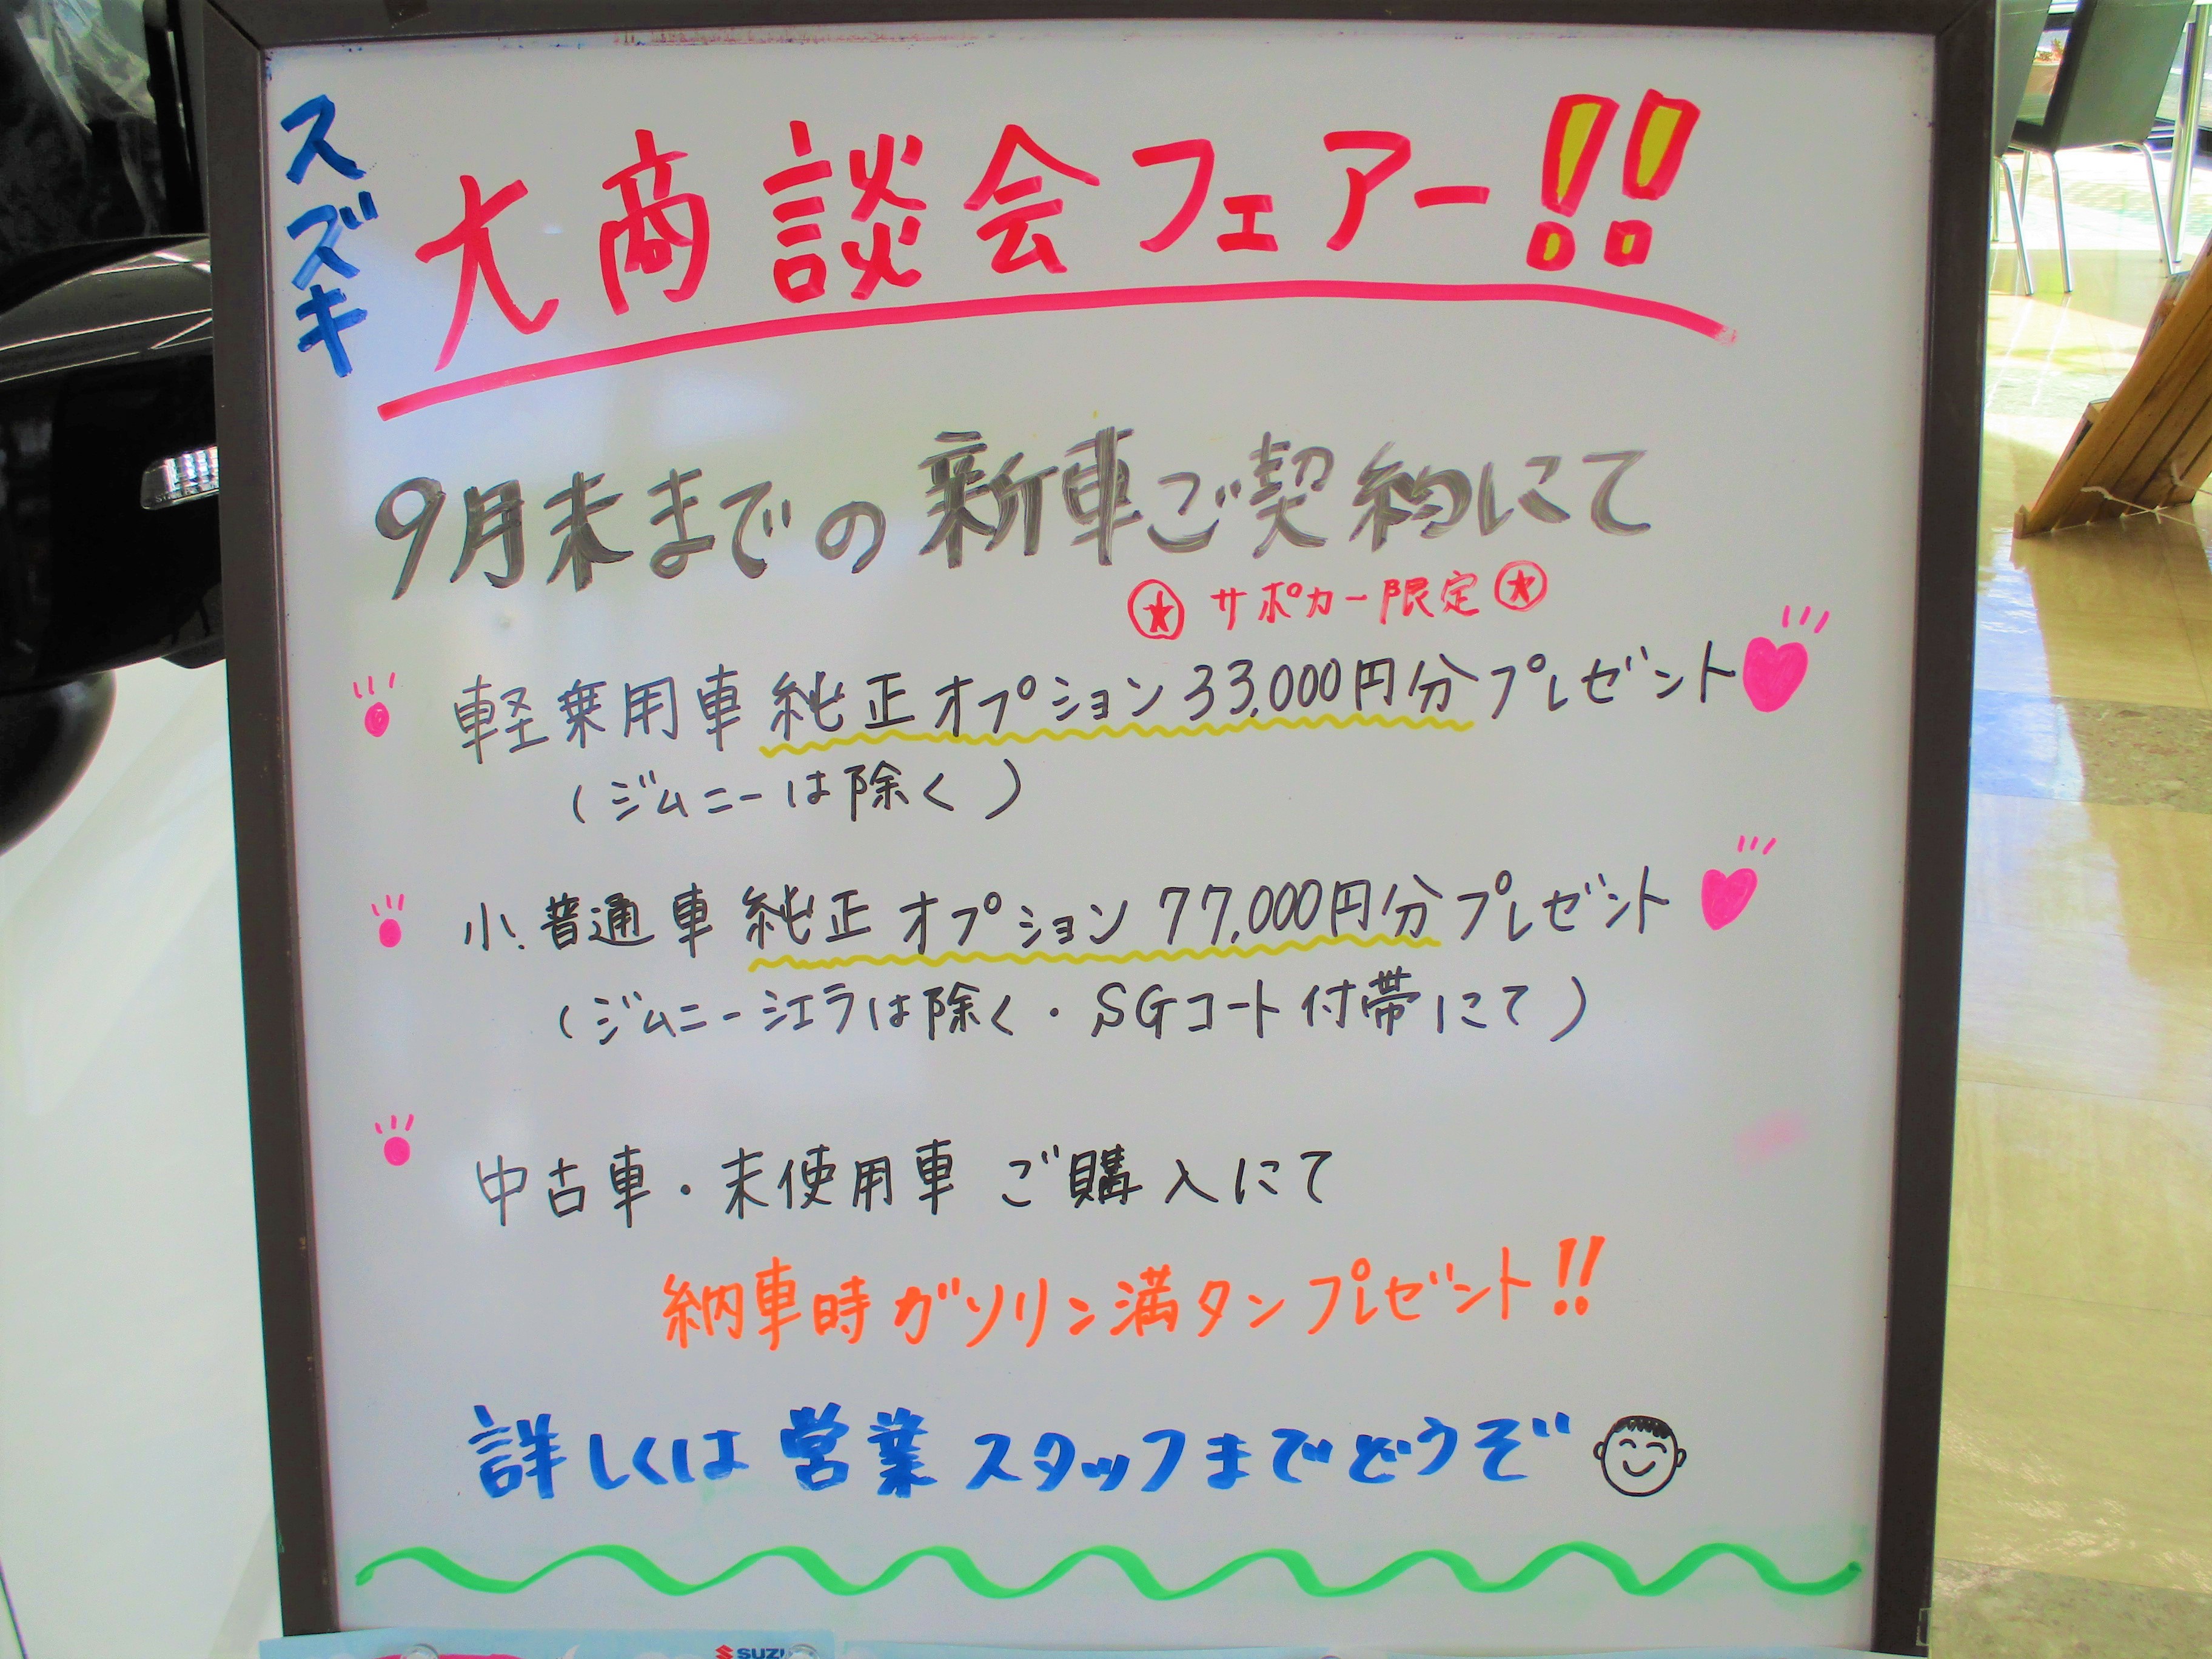 スズキ
大商談会フェアー!!
9月末までの新車ご契約にて
サポカー限定
軽乗用車 純正オプション33,000円分プレゼント
(ジムニーは除く)
小、普通車 純正オプション 77,000円分プレゼント
(ジムニーシエラは除く・SGコート付帯にて)
中古車・未使用車 ご購入にて
納車時ガソリン満タンプレゼント!!
詳しくは営業スタッフまでどうぞ